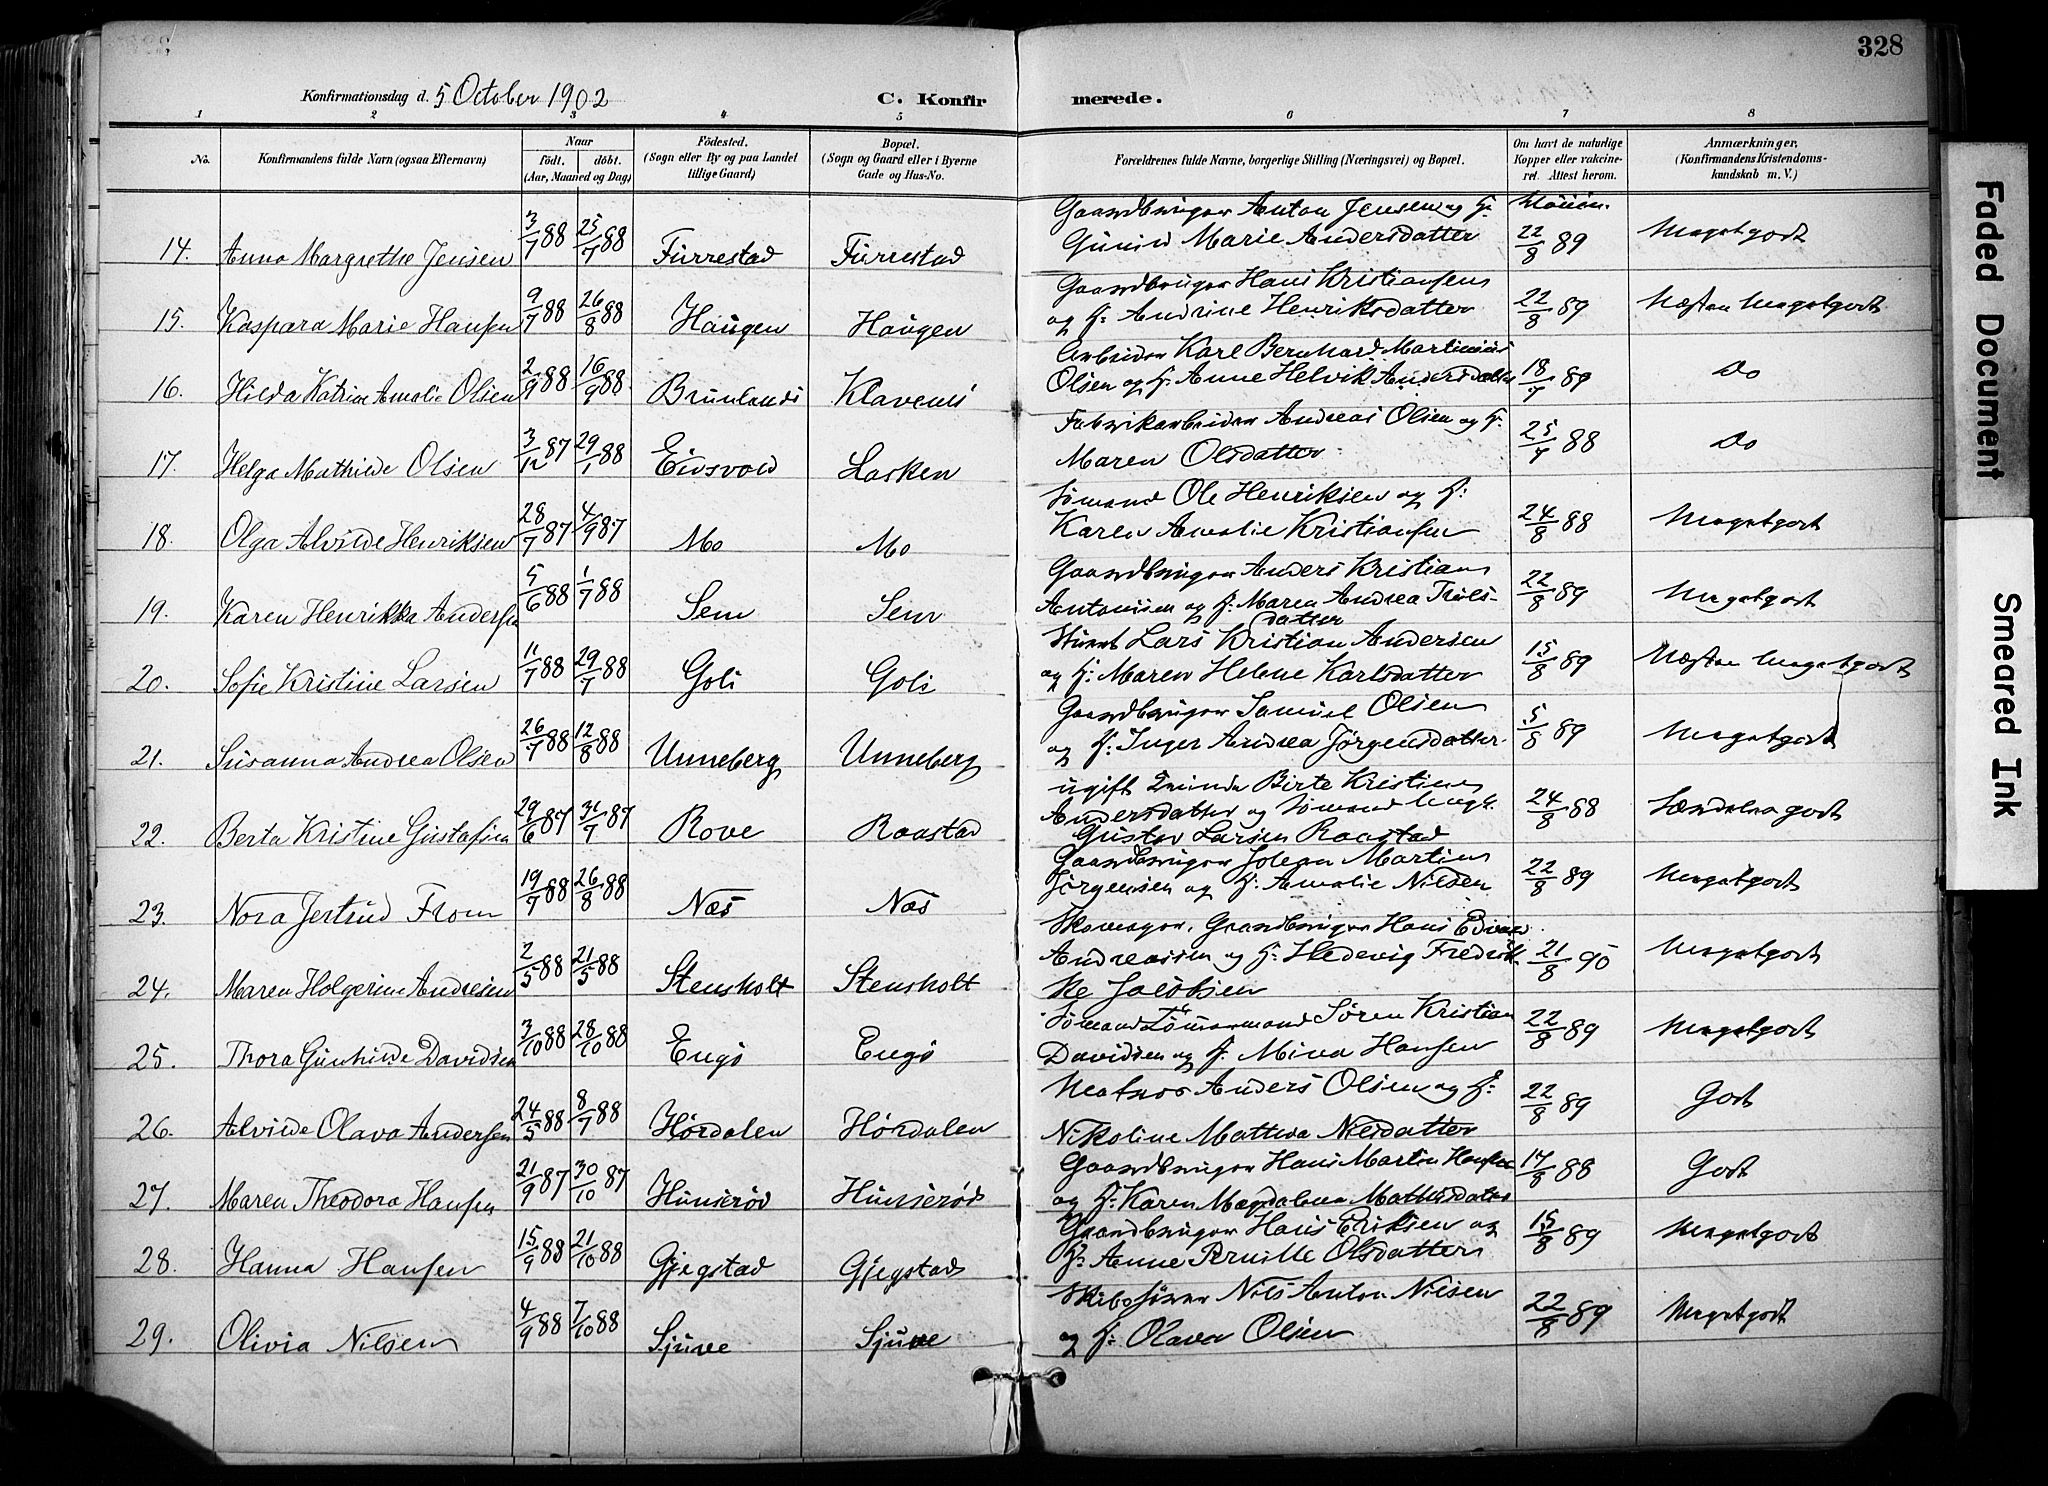 328
Konfirmationsdag d. 5 October 1902
C. Konfir merede.
1 2 3 4 5 6 7 8
No. Konfirmandens fulde Navn (ogsaa Efternavn) Naar født. døbt. (Aar, Maaned og Dag) Fødested. (Sogn eller By og paa Landet tillige Gaard) Bopæl. (Sogn og Gaard eller i Byerne Gade og Hus-No. Forældrenes fulde Navne, borgerlige Stilling (Næringsvei) og Bopæl. Om havt de naturlige Kopper eller vakcineret. Attest herom. Anmærkninger, (Konfirmandens Kristendomskundskab m. V.)
14. Anna Margrethe Jensen 3/7 88 25/7 88 Furrestad Furrestad Gaardbruger Anton Jensen og H: Gunild Marie Andersdatter 22/8 89 Megetgodt
15. Kaspara Marie Hansen 9/7 88 26/8 88 Haugen Haugen Gaardbruger Hans Kristiansen og H: Andrine Henriksdatter 22/8 89 Næsten Megetgodt
16. Hilda Katrine Amalie Olsen 2/9 88 16/9 88 Brunlanes Klavenes Arbeider Karl Bernhard Martinius Olsen og H: Anne Helvik Andersdatter 18/7 89 Do
17. Helga Mathilde Olsen 3/12 87 29/1 88 Eidsvold Lasken Fabrikarbeider Andreas Olsen og H: Maren Olsdatter 25/7 88 Do
18. Olga Alvilde Henriksen 28/7 87 4/9 87 Mo Mo Sømand Ole Henriksen og H: Karen Amalie Kristiansen 24/8 88 Megetgodt
19. Karen Henrikka Andersen 5/6 88 1/7 88 Sem Sem Gaardbruger Anders Kristian Antonisen og H: Maren Andrea Truls-datter 22/8 89 Megetgodt
20. Sofie Kristine Larsen 11/7 88 29/7 88 Goli Goli Lars Kristian Andersen og H: Maren Helene Karlsdatter 15/8 89 Næsten Megetgodt
21. Susanna Andrea Olsen 26/7 88 12/8 88 Unneberg Unneberg Gaardbruger Samuel Olsen og H: Inger Andrea Jørgensdatter 5/8 89 Megetgodt
22. Berta Kristine Gustafsen 29/6 87 31/7 87 Rove Raastad ugift Kvinde Birte Kristine Andersdatter og Sømand Gustav Larsen Raastad 24/8 88 Særdeles godt
23. Nora Jertrud From 19/7 88 26/8 88 Næs Næs Gaardbruger Johan Martin Jørgensen og H: Amalie Nilsen 22/8 89 Megetgodt
24. Maren Holgerine Andresen 2/5 88 21/5 88 Stensholt Stensholt Skomager, Gaardbruger Hans Edvard Andreassen og H: Hedevig Fredrikke Jacobsen 21/8 90 Megetgodt
25. Thora Gunhilde Davidsen 3/10 88 28/10 88 Engø Engø Sømand Søren Kristian Davidsen og H: Mina Hansen 22/8 89 Megetgodt
26. Alvilde Olava Andersen 24/5 88 8/7 88 Hørdalen Hørdalen Matros Anders Olsen og H: Nikoline Mathea Nilsdatter 22/8 89 Godt
27. Maren Theodora Hansen 21/9 87 30/10 87 Hunserød Hunserød Gaardbruger Hans Martin Hansen og H: Karen Magdalena Mathisdatter 17/8 88 Godt
28. Hanna Hansen 15/9 88 21/10 88 Gjegstad Gjegstad Gaardbruger Hans Eriksen og H: Anne Pernille Olsdatter 15/8 89 Megetgodt
29. Olivia Nilsen 4/9 88 7/10 88 Sjuve Sjuve Skibsfører Nils Anton Nilsen og H: Olava Olsen 22/8 89 Megetgodt
Faded Document
Smeared Ink